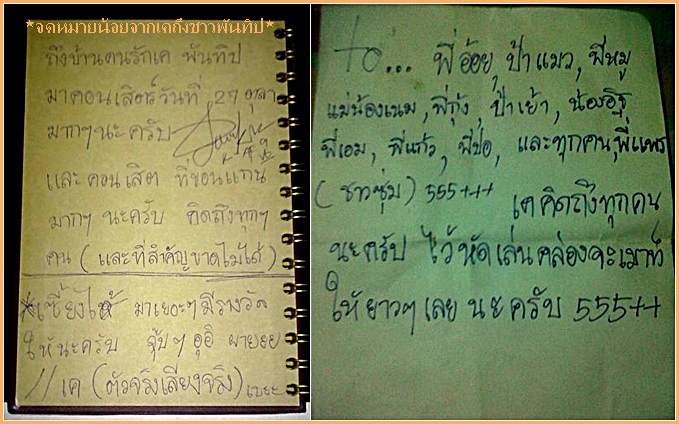 *จดหมายน้อยจากเคถึงชาวพันทิป*
ถึงบ้านคนรักเค พันทิป
มาคอนเสิตร์วันที่ 27 ตุลา
มากๆนะครับ
และคอนเสิต ที่ขอนแก่น
มากๆ นะครับ คิดถึงทุกๆ
คน (และที่สำคัญขาดไม่ได้)
*เซี้ยงไฮ้ มาเยอะๆ มีรางวัล
ให้นะครับ จุ๊บๆ อุอิ
// เค (ตัวจริงเสียงจริง)
to... พี่อ้อย, ป้าแมว, พี่หมู
แม่น้องเนม, พี่กุ้ง, ป้าเย้า, น้องอิฐ
พี่เอม, พี่แก้ว, พี่ปอ, และทุกคน, พี่แพร
(ชาวซุ่ม) 555+++ เคคิดถึงทุกคน
นะครับ ไว้หัดเล่นคล่องจะเมาท์
ให้ยาวๆเลยนะครับ 555++